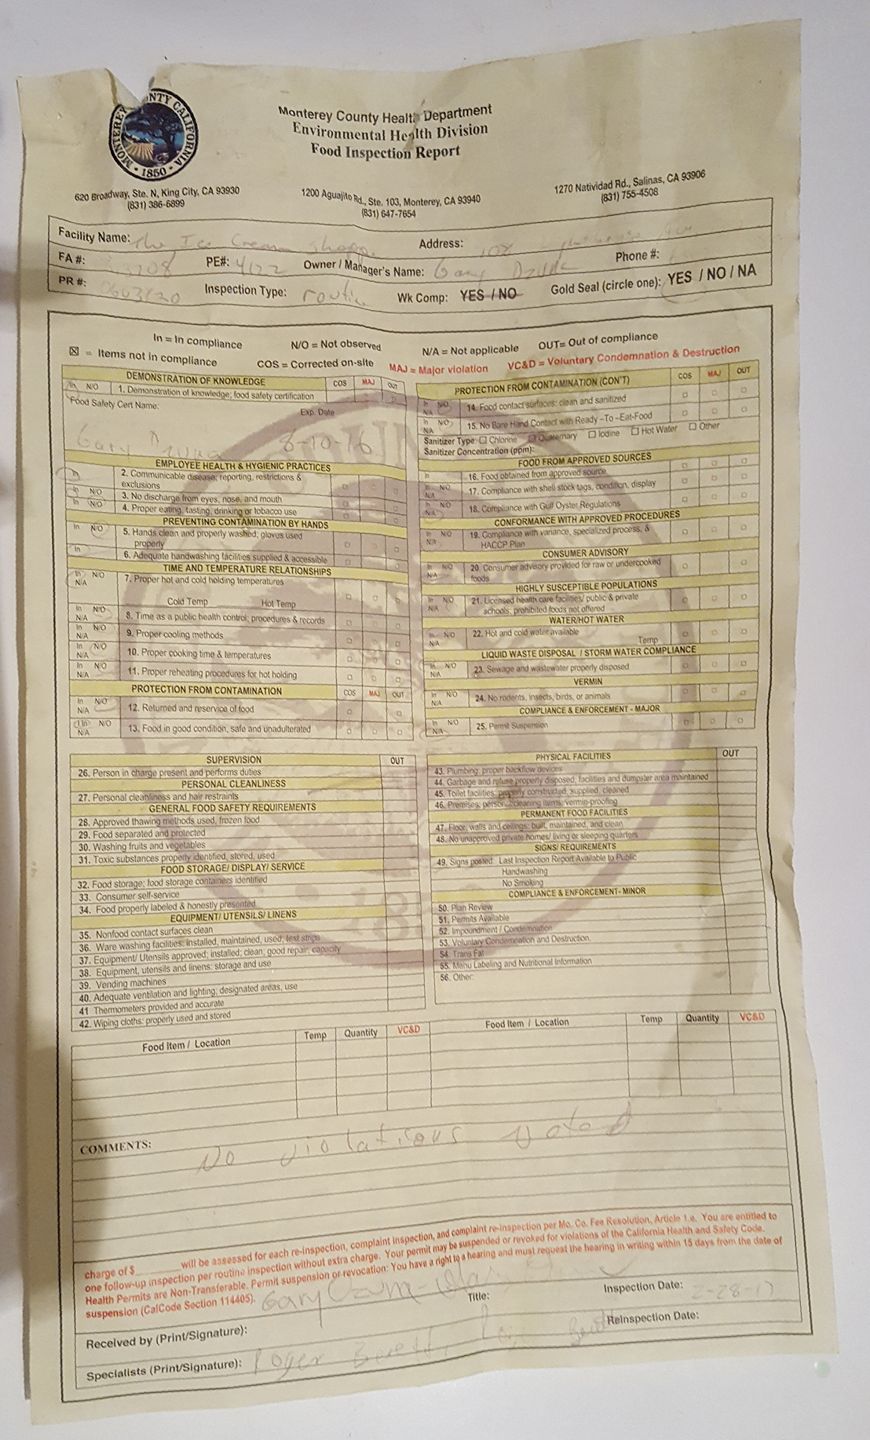 MONTEREY COUNTY CALIFORNIA
1850
Monterey County Health Department
Environmental Health Division
Food Inspection Report
620 Broadway, Ste. N, King City, CA 93930
(831) 386-6899
1200 Aguajito Rd., Ste. 103, Monterey, CA 93940
(831) 647-7654
1270 Natividad Rd., Salinas, CA 93906
(831) 755-4508
Facility Name: The Ice Cream Shoppe Address:
FA #: PE#: 4122 Owner / Manager's Name: Gary Phone #:
PR #: Inspection Type: routine Wk Comp: YES / NO Gold Seal (circle one): YES / NO / NA
In = In compliance N/O = Not observed N/A = Not applicable OUT= Out of compliance
☒ = Items not in compliance COS = Corrected on-site MAJ = Major violation VC&D = Voluntary Condemnation & Destruction
DEMONSTRATION OF KNOWLEDGE COS MAJ OUT
In N/O 1. Demonstration of knowledge; food safety certification
Food Safety Cert Name: Exp. Date
Gary 8-10-16
EMPLOYEE HEALTH & HYGIENIC PRACTICES
In 2. Communicable disease; reporting, restrictions &
exclusions
In N/O 3. No discharge from eyes, nose, and mouth
In N/O 4. Proper eating, tasting, drinking or tobacco use
PREVENTING CONTAMINATION BY HANDS
In N/O 5. Hands clean and properly washed; gloves used
properly
In 6. Adequate handwashing facilities supplied & accessible
TIME AND TEMPERATURE RELATIONSHIPS
In N/O N/A 7. Proper hot and cold holding temperatures
Cold Temp Hot Temp
In N/O N/A 8. Time as a public health control; procedures & records
In N/O N/A 9. Proper cooling methods
In N/O N/A 10. Proper cooking time & temperatures
In N/O N/A 11. Proper reheating procedures for hot holding
PROTECTION FROM CONTAMINATION COS MAJ OUT
In N/O N/A 12. Returned and reservice of food
In N/O N/A 13. Food in good condition, safe and unadulterated
PROTECTION FROM CONTAMINATION (CON'T) COS MAJ OUT
In N/O N/A 14. Food contact surfaces: clean and sanitized
15. No Bare Hand Contact with Ready -To -Eat-Food
Sanitizer Type: ☐ Chlorine ☐ Quaternary ☐ Iodine ☐ Hot Water ☐ Other
Sanitizer Concentration (ppm):
FOOD FROM APPROVED SOURCES
In 16. Food obtained from approved source
In N/O N/A 17. Compliance with shell stock tags, condition, display
In N/O N/A 18. Compliance with Gulf Oyster Regulations
CONFORMANCE WITH APPROVED PROCEDURES
In N/O N/A 19. Compliance with variance, specialized process, &
HACCP Plan
CONSUMER ADVISORY
In N/O N/A 20. Consumer advisory provided for raw or undercooked
foods
HIGHLY SUSCEPTIBLE POPULATIONS
In N/O N/A 21. Licensed health care facilities/ public & private
schools; prohibited foods not offered
WATER/HOT WATER
In N/O N/A 22. Hot and cold water available
Temp
LIQUID WASTE DISPOSAL / STORM WATER COMPLIANCE
In N/O N/A 23. Sewage and wastewater properly disposed
VERMIN
In N/O N/A 24. No rodents, insects, birds, or animals
COMPLIANCE & ENFORCEMENT - MAJOR
In N/O N/A 25. Permit Suspension
SUPERVISION OUT
26. Person in charge present and performs duties
PERSONAL CLEANLINESS
27. Personal cleanliness and hair restraints
GENERAL FOOD SAFETY REQUIREMENTS
28. Approved thawing methods used, frozen food
29. Food separated and protected
30. Washing fruits and vegetables
31. Toxic substances properly identified, stored, used
FOOD STORAGE/ DISPLAY/ SERVICE
32. Food storage; food storage containers identified
33. Consumer self-service
34. Food properly labeled & honestly presented
EQUIPMENT/ UTENSILS/ LINENS
35. Nonfood contact surfaces clean
36. Ware washing facilities: installed, maintained, used; test strips
37. Equipment/ Utensils approved; installed; clean; good repair, capacity
38. Equipment, utensils and linens: storage and use
39. Vending machines
40. Adequate ventilation and lighting; designated areas, use
41 Thermometers provided and accurate
42. Wiping cloths: properly used and stored
PHYSICAL FACILITIES OUT
43. Plumbing: proper backflow devices
44. Garbage and refuse properly disposed, facilities and dumpster area maintained
45. Toilet facilities: properly constructed, supplied, cleaned
46. Premises; personal/cleaning items; vermin-proofing
PERMANENT FOOD FACILITIES
47. Floor, walls and ceilings: built, maintained, and clean
48. No unapproved private homes/ living or sleeping quarters
SIGNS/ REQUIREMENTS
49. Signs posted: Last Inspection Report Available to Public
Handwashing
No Smoking
COMPLIANCE & ENFORCEMENT- MINOR
50. Plan Review
51. Permits Available
52. Impoundment / Condemnation
53. Voluntary Condemnation and Destruction.
54. Trans Fat
55. Menu Labeling and Nutritional Information
56. Other:
Food Item / Location Temp Quantity VC&D Food Item / Location Temp Quantity VC&D
COMMENTS: No violations noted
charge of $ will be assessed for each re-inspection, complaint inspection, and complaint re-inspection per Mo. Co. Fee Resolution, Article 1.e. You are entitled to
one follow-up inspection per routine inspection without extra charge. Your permit may be suspended or revoked for violations of the California Health and Safety Code.
Health Permits are Non-Transferable. Permit suspension or revocation: You have a right to a hearing and must request the hearing in writing within 15 days from the date of
suspension (CalCode Section 114405).
Received by (Print/Signature): Gary Title: Inspection Date: 2-28-17
Specialists (Print/Signature): Roger Reinspection Date: